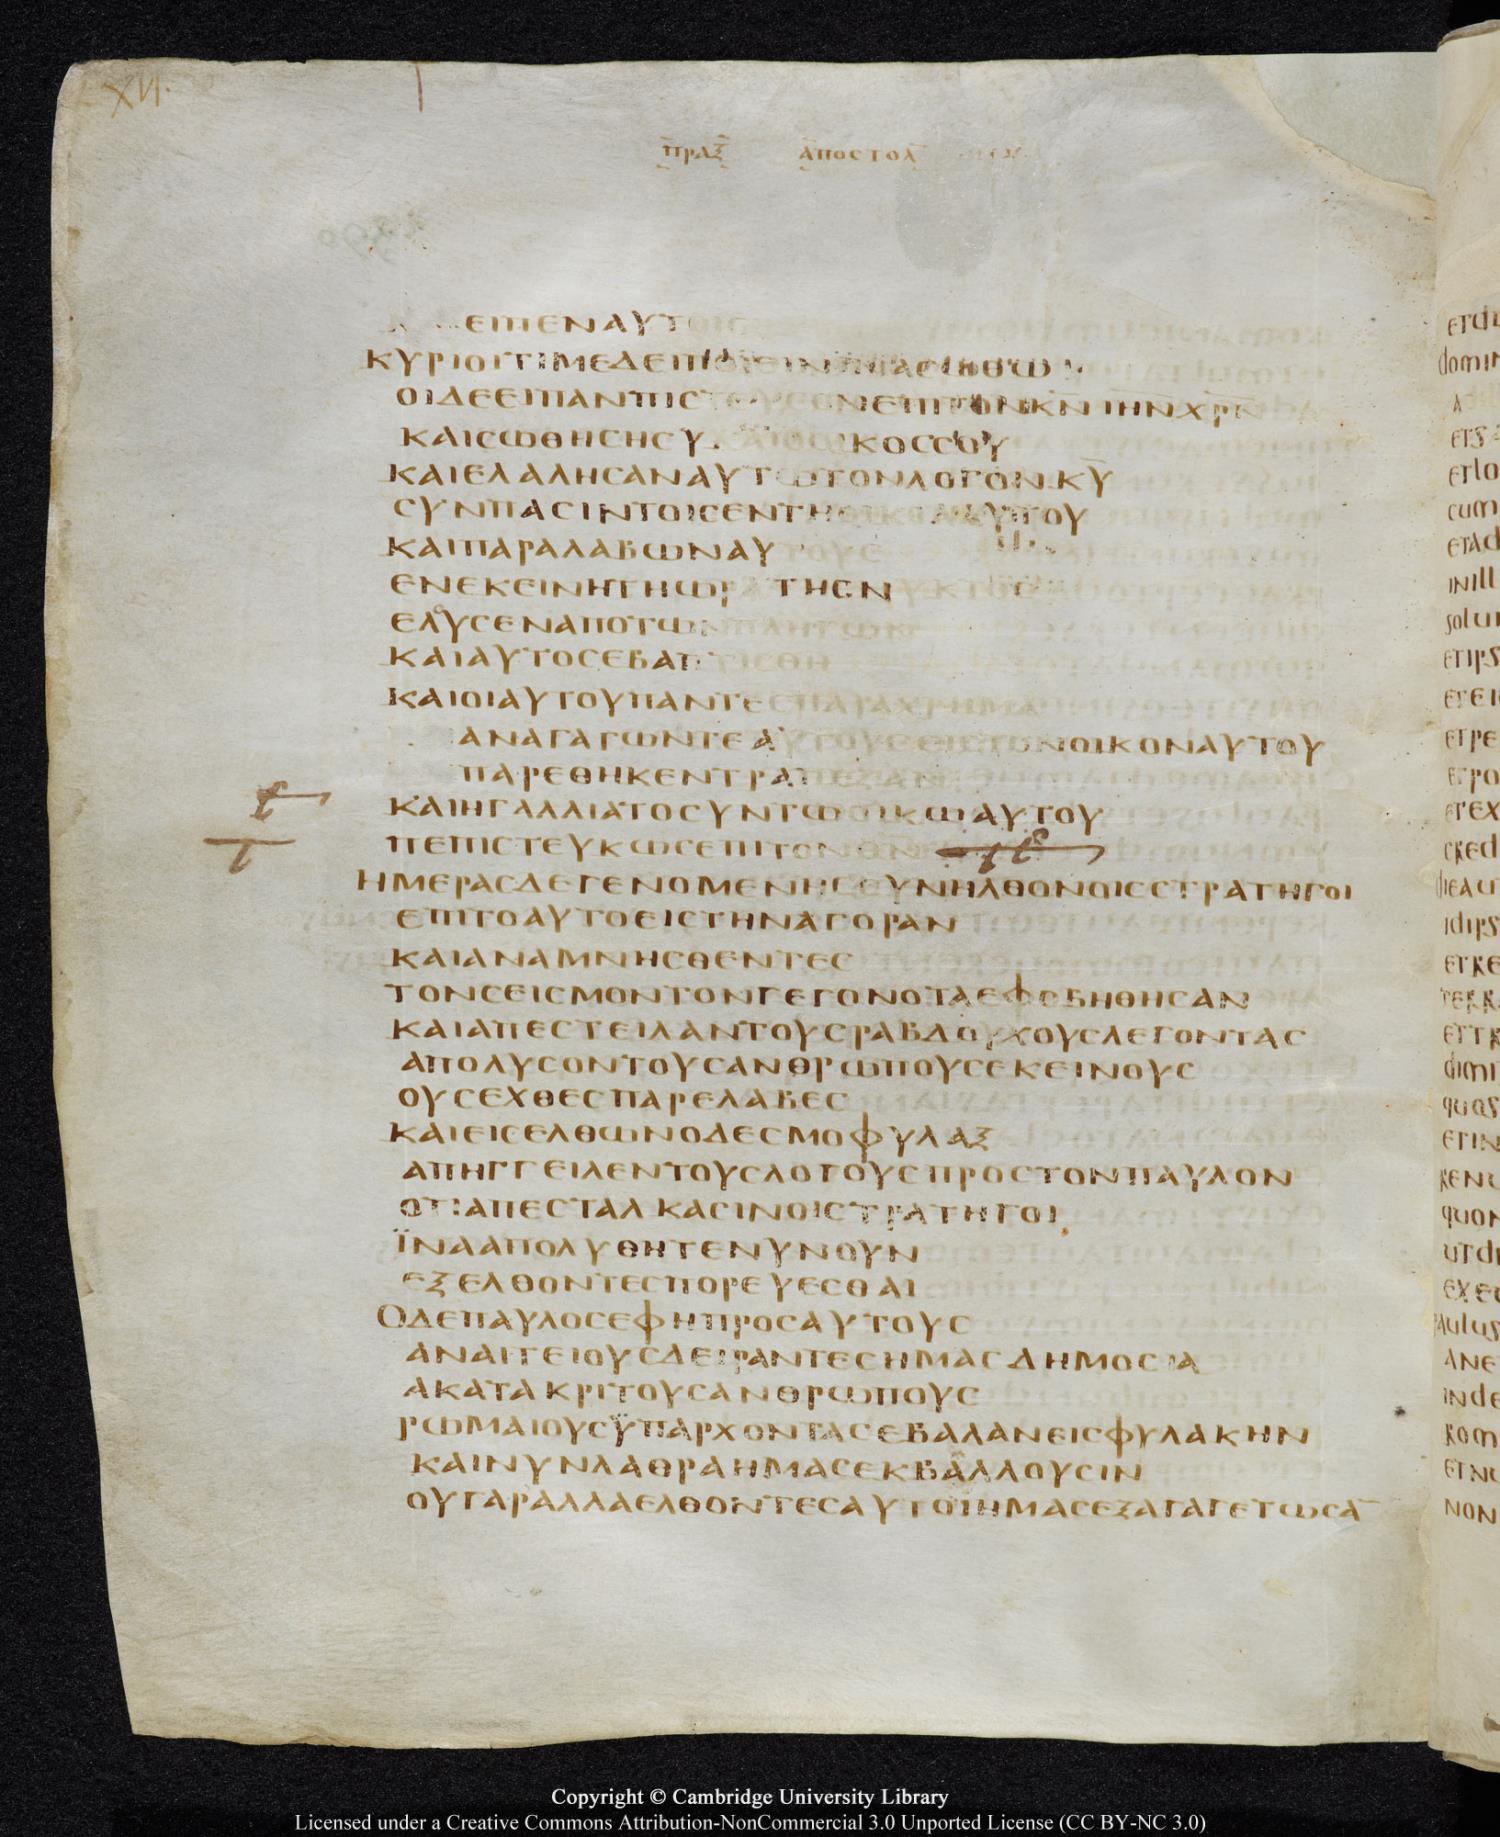 XVI.
ΠΡΑΞ ΑΠΟΣΤΟΛ
ΕΙΠΕΝ ΑΥΤΟΙΣ
ΚΥΡΙΟΙ ΤΙ ΜΕ ΔΕΙ ΠΟΙΕΙΝ ΙΝΑ ΣΩΘΩ
ΟΙ ΔΕ ΕΙΠΑΝ ΠΙΣΤΕΥΣΟΝ ΕΠΙ ΤΟΝ ΚΝ ΙΗΝ ΧΡΝ
ΚΑΙ ΣΩΘΗΣΗ ΣΥ ΚΑΙ Ο ΟΙΚΟΣ ΣΟΥ
ΚΑΙ ΕΛΑΛΗΣΑΝ ΑΥΤΩ ΤΟΝ ΛΟΓΟΝ ΚΥ
ΣΥΝ ΠΑΣΙΝ ΤΟΙΣ ΕΝ ΤΗ ΑΥΤΟΥ
ΚΑΙ ΠΑΡΑΛΑΒΩΝ ΑΥΤΟΥΣ
ΕΝ ΕΚΕΙΝΗ ΤΗ ΩΡΑ ΤΗΣ Ν
ΕΛΟΥΣΕΝ ΑΠΟ ΤΩΝ ΠΛΗΓΩΝ
ΚΑΙ ΑΥΤΟΣ ΕΒΑΠΤΙΣΘΗ
ΚΑΙ ΟΙ ΑΥΤΟΥ ΠΑΝΤΕΣ ΠΑΡΑΧΡΗΜΑ
ΑΝΑΓΑΓΩΝ ΤΕ ΑΥΤΟΥΣ ΕΙΣ ΤΟΝ ΟΙΚΟΝ ΑΥΤΟΥ
ΠΑΡΕΘΗΚΕΝ ΤΡΑΠΕΖΑΝ
ΚΑΙ ΗΓΑΛΛΙΑΤΟ ΣΥΝ ΤΩ ΟΙΚΩ ΑΥΤΟΥ
ΠΕΠΙΣΤΕΥΚΩΣ ΕΠΙ ΤΟΝ ΘΝ
ΗΜΕΡΑΣ ΔΕ ΓΕΝΟΜΕΝΗΣ ΣΥΝΗΛΘΟΝ ΟΙ ΣΤΡΑΤΗΓΟΙ
ΕΠΙ ΤΟ ΑΥΤΟ ΕΙΣ ΤΗΝ ΑΓΟΡΑΝ
ΚΑΙ ΑΝΑΜΝΗΣΘΕΝΤΕΣ
ΤΟΝ ΣΕΙΣΜΟΝ ΤΟΝ ΓΕΓΟΝΟΤΑ ΕΦΟΒΗΘΗΣΑΝ
ΚΑΙ ΑΠΕΣΤΕΙΛΑΝ ΤΟΥΣ ΡΑΒΔΟΥΧΟΥΣ ΛΕΓΟΝΤΑΣ
ΑΠΟΛΥΣΟΝ ΤΟΥΣ ΑΝΘΡΩΠΟΥΣ ΕΚΕΙΝΟΥΣ
ΟΥΣ ΕΧΘΕΣ ΠΑΡΕΛΑΒΕΣ
ΚΑΙ ΕΙΣΕΛΘΩΝ Ο ΔΕΣΜΟΦΥΛΑΞ
ΑΠΗΓΓΕΙΛΕΝ ΤΟΥΣ ΛΟΓΟΥΣ ΠΡΟΣ ΤΟΝ ΠΑΥΛΟΝ
ΟΤΙ ΑΠΕΣΤΑΛΚΑΣΙΝ ΟΙ ΣΤΡΑΤΗΓΟΙ
ΪΝΑ ΑΠΟΛΥΘΗΤΕ ΝΥΝ ΟΥΝ
ΕΞΕΛΘΟΝΤΕΣ ΠΟΡΕΥΕΣΘΑΙ
Ο ΔΕ ΠΑΥΛΟΣ ΕΦΗ ΠΡΟΣ ΑΥΤΟΥΣ
ΑΝΑΙΤΕΙΟΥΣ ΔΕΙΡΑΝΤΕΣ ΗΜΑΣ ΔΗΜΟΣΙΑ
ΑΚΑΤΑΚΡΙΤΟΥΣ ΑΝΘΡΩΠΟΥΣ
ΡΩΜΑΙΟΥΣ ΫΠΑΡΧΟΝΤΑΣ ΕΒΑΛΑΝ ΕΙΣ ΦΥΛΑΚΗΝ
ΚΑΙ ΝΥΝ ΛΑΘΡΑ ΗΜΑΣ ΕΚΒΑΛΛΟΥΣΙΝ
ΟΥ ΓΑΡ ΑΛΛΑ ΕΛΘΟΝΤΕΣ ΑΥΤΟΙ ΗΜΑΣ ΕΞΑΓΑΓΕΤΩΣΑ̅
Copyright © Cambridge University Library
Licensed under a Creative Commons Attribution-NonCommercial 3.0 Unported License (CC BY-NC 3.0)